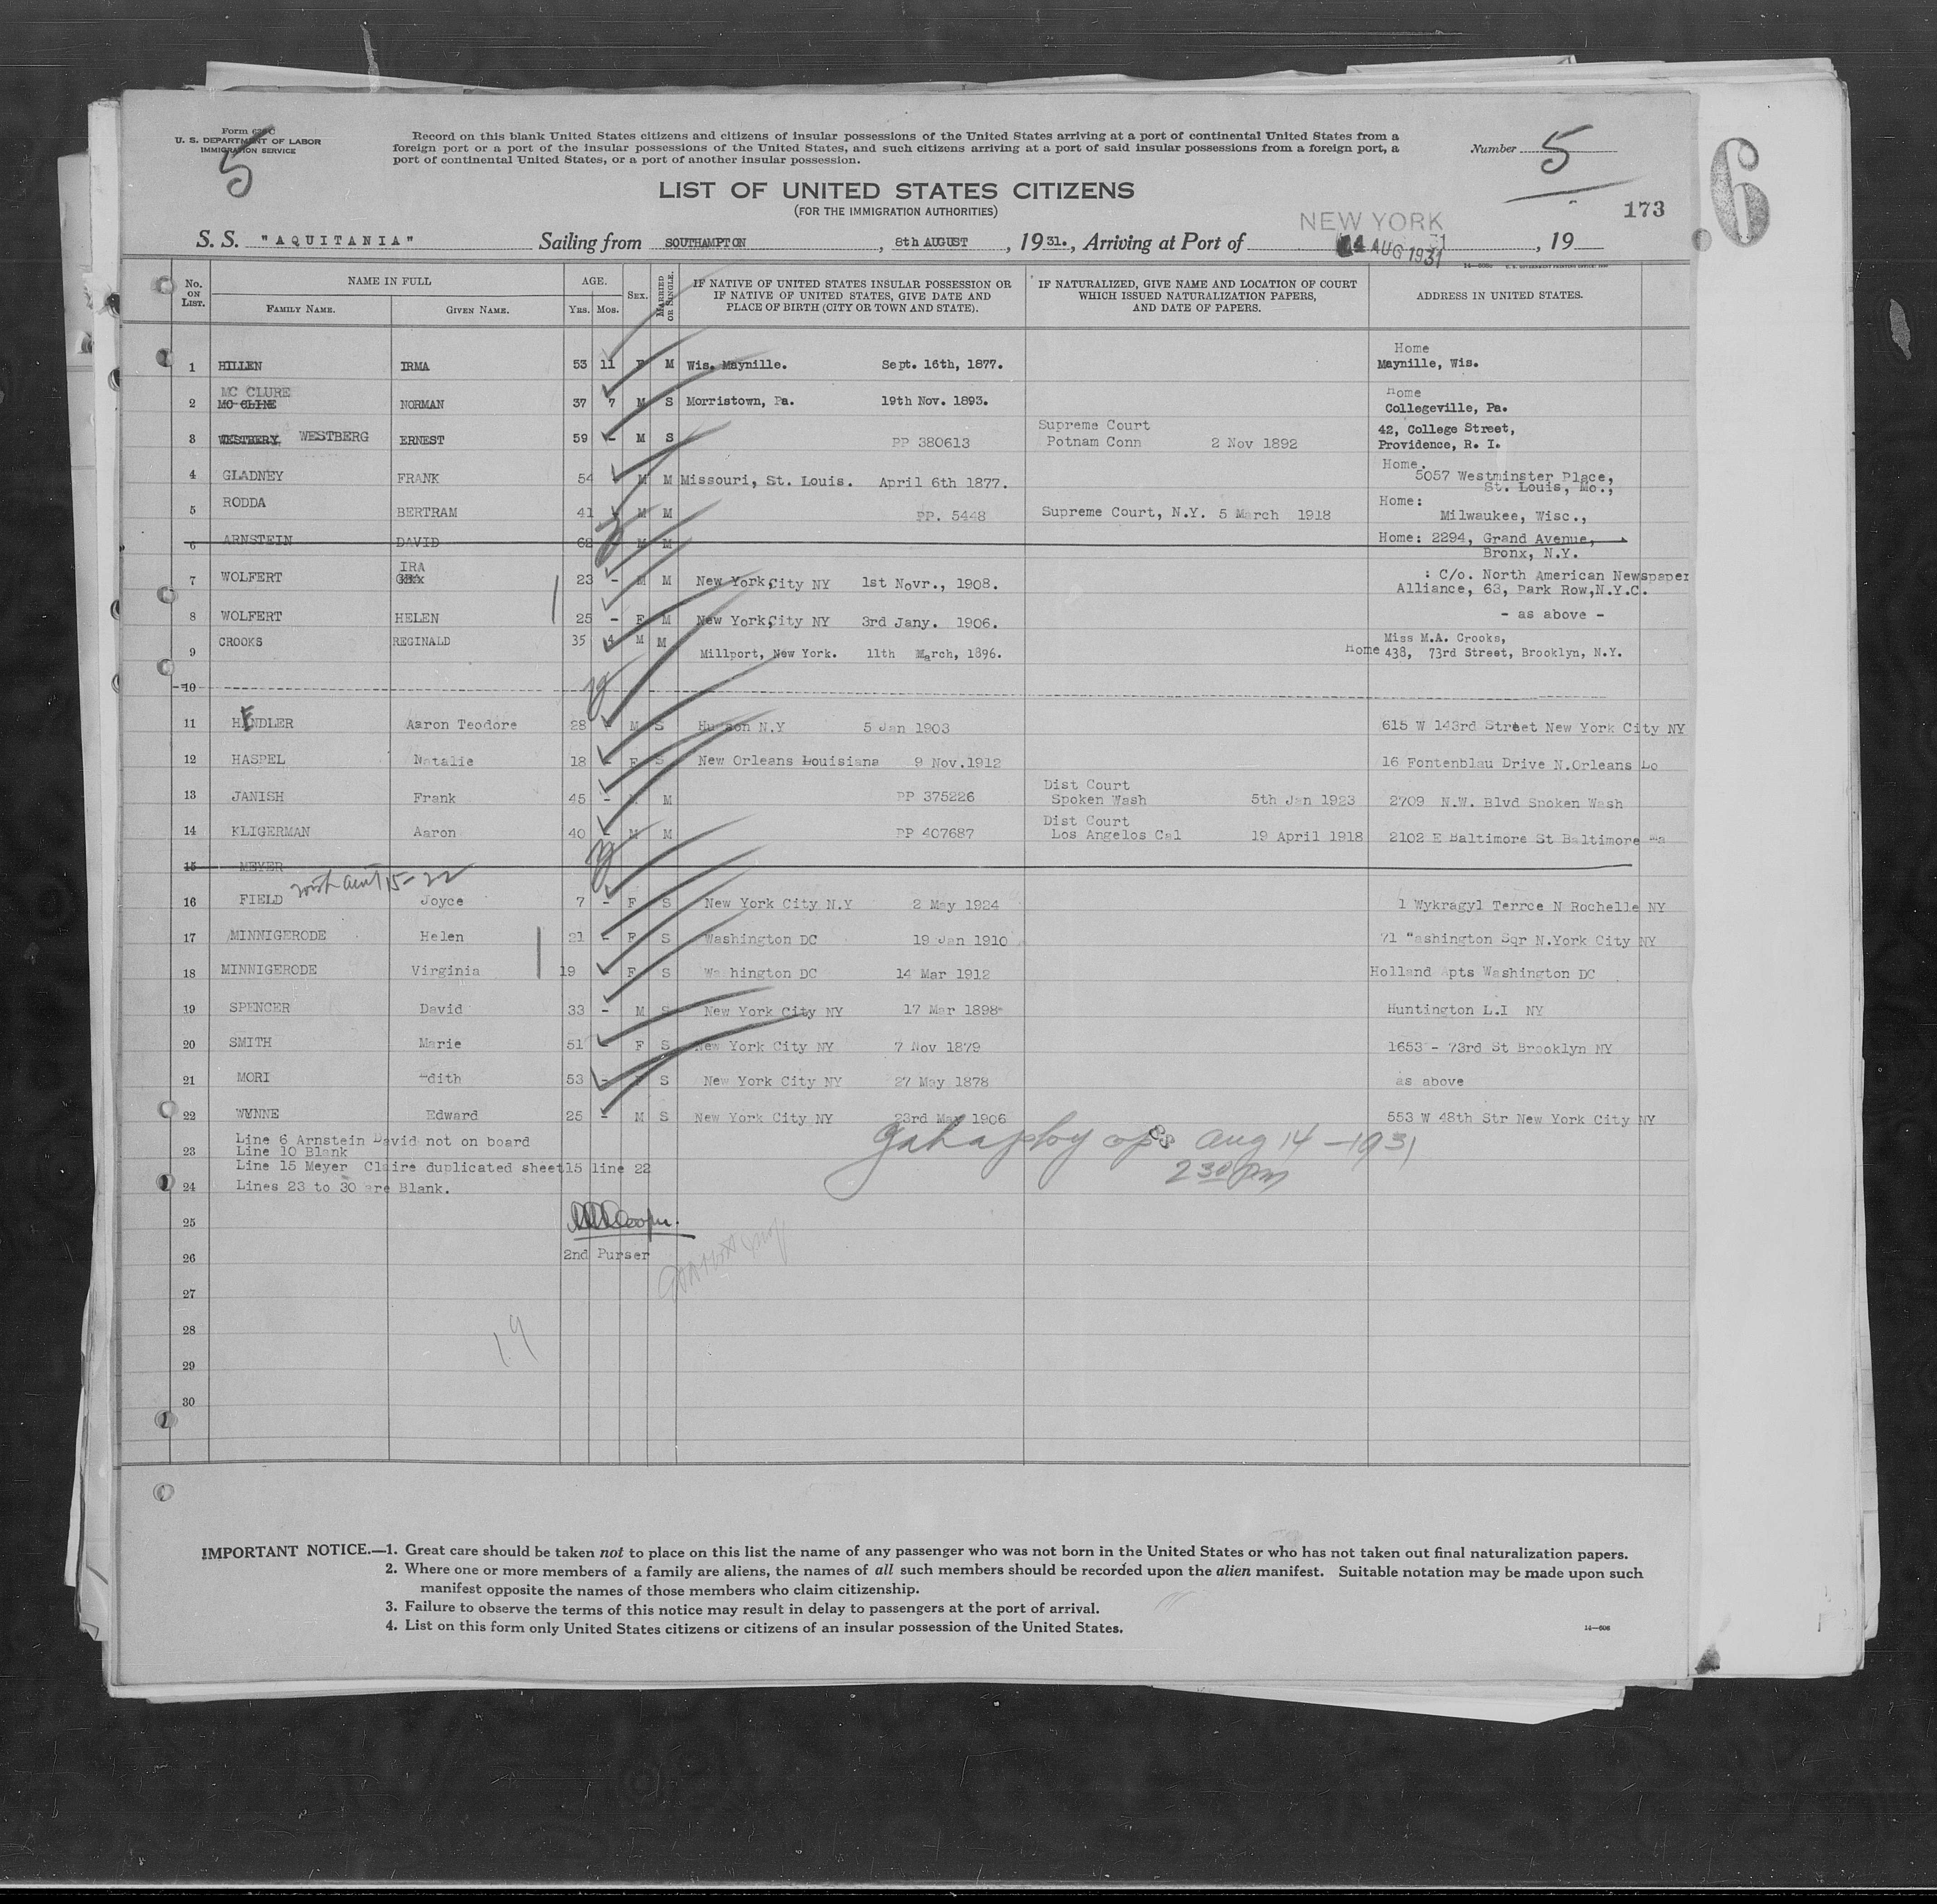 Form 630 C
U. S. DEPARTMENT OF LABOR
IMMIGRATION SERVICE
5
Record on this blank United States citizens and citizens of insular possessions of the United States arriving at a port of continental United States from a
foreign port or a port of the insular possessions of the United States, and such citizens arriving at a port of said insular possessions from a foreign port, a
port of continental United States, or a port of another insular possession.
Number 5
LIST OF UNITED STATES CITIZENS
(FOR THE IMMIGRATION AUTHORITIES)
173
6
NEW YORK
S. S. "AQUITANIA" Sailing from SOUTHAMPTON, 8th AUGUST, 1931., Arriving at Port of 14 AUG 1931, 19
No. ON LIST. NAME IN FULL FAMILY NAME. GIVEN NAME. AGE. YRS. MOS. SEX. MARRIED OR SINGLE. IF NATIVE OF UNITED STATES INSULAR POSSESSION OR IF NATIVE OF UNITED STATES, GIVE DATE AND PLACE OF BIRTH (CITY OR TOWN AND STATE). IF NATURALIZED, GIVE NAME AND LOCATION OF COURT WHICH ISSUED NATURALIZATION PAPERS, AND DATE OF PAPERS. ADDRESS IN UNITED STATES.
Home
1 HILLEN IRMA 53 11 F M Wis. Maynille. Sept. 16th, 1877. Maynille, Wis.
MC CLURE Home
2 MC CLINE NORMAN 37 7 M S Morristown, Pa. 19th Nov. 1893. Collegeville, Pa.
Supreme Court 42, College Street,
3 WESTBERY WESTBERG ERNEST 59 - M S PP 380613 Potnam Conn 2 Nov 1892 Providence, R. I.
Home.
4 GLADNEY FRANK 54 M M Missouri, St. Louis. April 6th 1877. 5057 Westminster Place,
St. Louis, Mo.,
Home:
5 RODDA BERTRAM 41 M M PP. 5448 Supreme Court, N.Y. 5 March 1918 Milwaukee, Wisc.,
6 ARNSTEIN DAVID 62 M M Home: 2294, Grand Avenue,
Bronx, N.Y.
IRA : C/o. North American Newspaper
7 WOLFERT 23 - M M New York,City NY 1st Novr., 1908. Alliance, 63, Park Row,N.Y.C.
8 WOLFERT HELEN 25 - F M New York,City NY 3rd Jany. 1906. - as above -
Miss M.A. Crooks,
9 CROOKS REGINALD 35 4 M M Millport, New York. 11th March, 1896. Home 438, 73rd Street, Brooklyn, N.Y.
10
11 HENDLER Aaron Teodore 28 - M S Hudson N.Y 5 Jan 1903 615 W 143rd Street New York City NY
12 HASPEL Natalie 18 - F S New Orleans Louisiana 9 Nov.1912 16 Fontenblau Drive N.Orleans Lo
Dist Court
13 JANISH Frank 45 - M PP 375226 Spoken Wash 5th Jan 1923 2709 N.W. Blvd Spoken Wash
Dist Court
14 KLIGERMAN Aaron 40 - M M PP 407687 Los Angelos Cal 19 April 1918 2102 E Baltimore St Baltimore Ma
15 MEYER
with aunt 15-22
16 FIELD Joyce 7 - F S New York City N.Y 2 May 1924 1 Wykragyl Terrce N Rochelle NY
17 MINNIGERODE Helen 21 - F S Washington DC 19 Jan 1910 71 "ashington Sqr N.York City NY
18 MINNIGERODE Virginia 19 - F S Washington DC 14 Mar 1912 Holland Apts Washington DC
19 SPENCER David 33 - M S New York City NY 17 Mar 1898 Huntington L.I NY
20 SMITH Marie 51 - F S New York City NY 7 Nov 1879 1653 - 73rd St Brooklyn NY
21 MORI Edith 53 - F S New York City NY 27 May 1878 as above
22 WYNNE Edward 25 - M S New York City NY 23rd Mar 1906 553 W 48th Str New York City NY
Line 6 Arnstein David not on board
23 Line 10 Blank
Line 15 Meyer Claire duplicated sheet15 line 22
24 Lines 23 to 30 are Blank.
Aug 14 - 1931
2 30 PM
25
2nd Purser
26
27
28
19
29
30
IMPORTANT NOTICE.—1. Great care should be taken not to place on this list the name of any passenger who was not born in the United States or who has not taken out final naturalization papers.
2. Where one or more members of a family are aliens, the names of all such members should be recorded upon the alien manifest. Suitable notation may be made upon such
manifest opposite the names of those members who claim citizenship.
3. Failure to observe the terms of this notice may result in delay to passengers at the port of arrival.
4. List on this form only United States citizens or citizens of an insular possession of the United States.
14—606